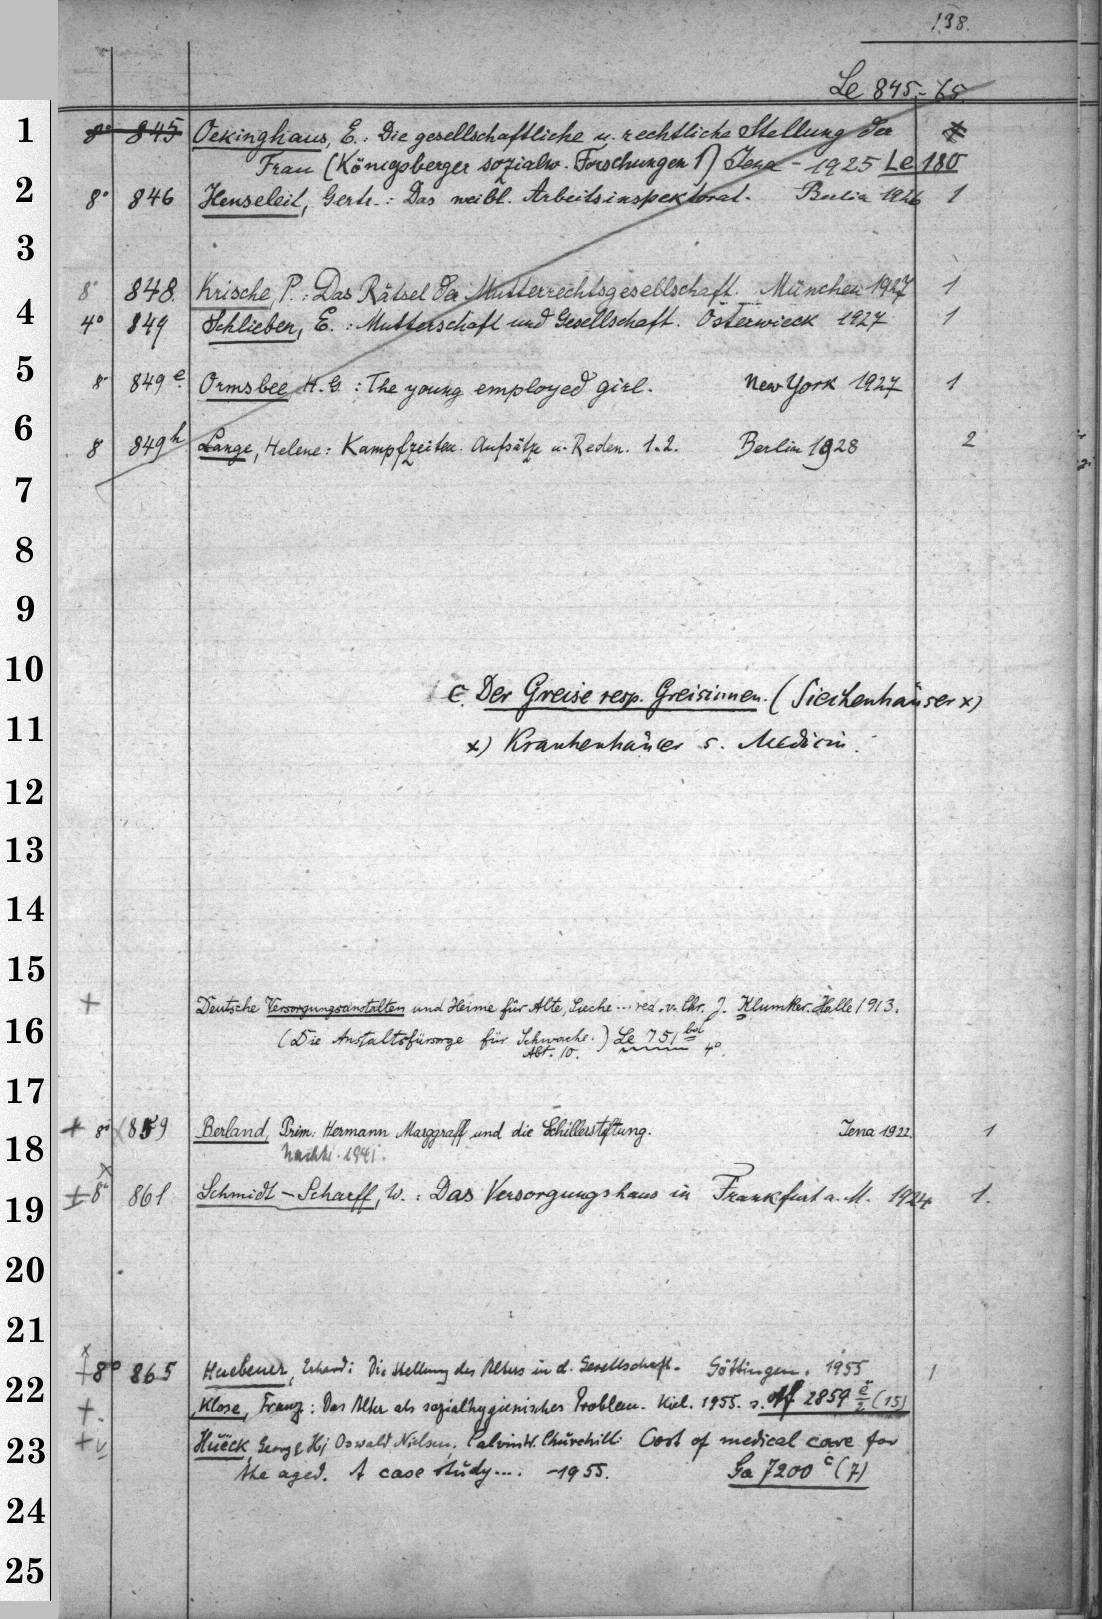 138.
Le 845-65.
1 8° 845 Oekinghaus, E.: Die gesellschaftliche u. rechtliche Stellung der
Frau (Königsberger sozialw. Forschungen 1) Jena - 1925 Le 180
2 8° 846 Henseleit, Gertr.: Das weibl. Arbeitsinspektorat. Berlin 1926 1
3
8° 848. Krische, P.: Das Rätsel der Mutterrechtsgesellschaft. München 1927 1
4 4° 849 Schlieben, E.: Mutterschaft und Gesellschaft. Osterwieck 1927 1
5 8° 849e Ormsbee H. G.: The young employed girl. New York 1927 1
6 8 849h Lange, Helene: Kampfzeiten. Aufsätze u. Reden. 1.2. Berlin 1928 2
7
8
9
10
c. Der Greise resp. Greisinnen. (Siechenhäuser x)
11 x) Krankenhäuser s. Medicin.
12
13
14
15
+ Deutsche Versorgungsanstalten und Heime für Alte, Sieche ... red. v. Chr. J. Klumker. Halle 1913.
16 (Die Anstaltsfürsorge für Schwache. Abt. 10.) Le 751 4°.
17
18 + 8° (859 Berland, Prim: Hermann Marggraff und die Schillerstiftung. Jena 1922. 1
1941.
19 + 8° 861 Schmidt-Scharff, W.: Das Versorgungshaus in Frankfurt a. M. 1924 1.
20
21
x
+ 8° 865 Huebener, Erhard: Die Stellung des Alters in d. Gesellschaft. Göttingen. 1955 1
22 +. Klose, Franz: Das Alter als sozialhygienisches Problem. Kiel. 1955. s. 2859 (15)
23 + v Hueck, George H; Oswald Nielsen. Calvin W. Churchill: Cost of medical care for
the aged. A case study.... -1955. Ga 7200 c (7)
24
25